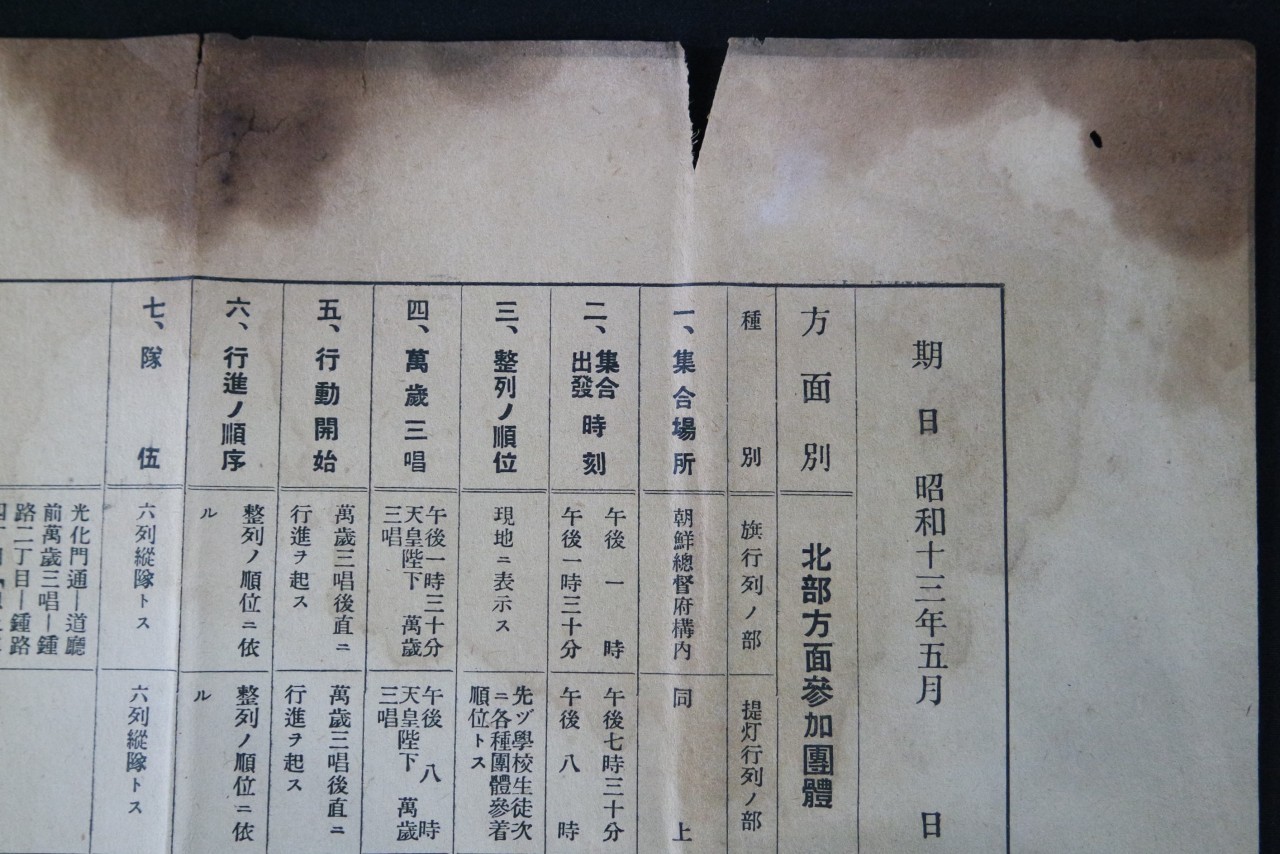 期日 昭和十三年五月 日
方面別
北部方面參加團體
種別
旗行列ノ部
提灯行列ノ部
一、集合場所
朝鮮總督府構内
同上
二、集合出發時刻
午後一時
午後一時三十分
午後七時三十分
午後八時
三、整列ノ順位
現地ニ表示ス
先ヅ學校生徒次
ニ各種團體參着
順位トス
四、萬歲三唱
午後一時三十分
天皇陛下 萬歲
三唱
午後八時
天皇陛下 萬歲
三唱
五、行動開始
萬歲三唱後直ニ
行進ヲ起ス
萬歲三唱後直ニ
行進ヲ起ス
六、行進ノ順序
整列ノ順位ニ依
ル
整列ノ順位ニ依
ル
七、隊伍
六列縱隊トス
六列縱隊トス
光化門通—道廳
前萬歲三唱—鍾
路二丁目—鍾路